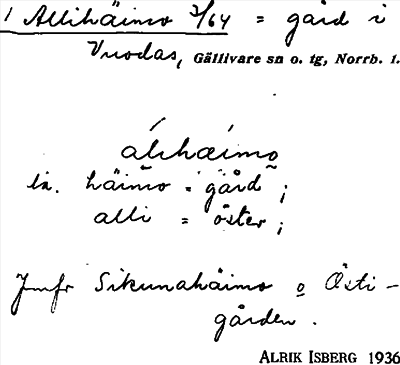 1 Allihäimo 3/64 = gård i
Vuodas, Gällivare sn o. tg, Norrb. l.
álihæimo
häimo = gård ;
alli = öster ;
Jmfr Sikunahäimo o Östi-
gården.
ALRIK ISBERG 1936